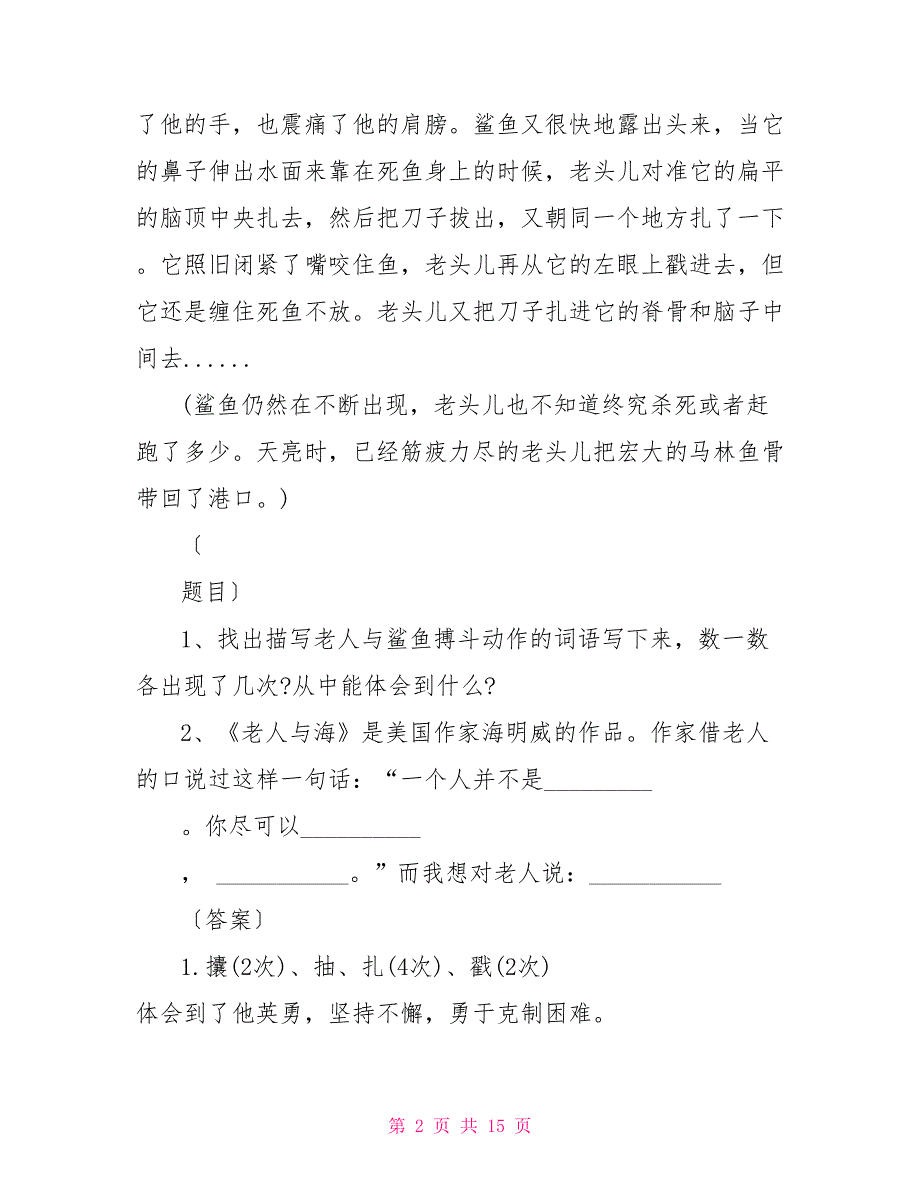 了他的手，也震痛了他的肩膀。鲨鱼又很快地露出头来，当它
的鼻子伸出水面来靠在死鱼身上的时候，老头儿对准它的扁平
的脑顶中央扎去，然后把刀子拔出，又朝同一个地方扎了一下
。它照旧闭紧了嘴咬住鱼，老头儿再从它的左眼上戳进去，但
它还是缠住死鱼不放。老头儿又把刀子扎进它的脊骨和脑子中
间去......
(鲨鱼仍然在不断出现，老头儿也不知道终究杀死或者赶
跑了多少。天亮时，已经筋疲力尽的老头儿把宏大的马林鱼骨
带回了港口。)
〔
题目〕
1、找出描写老人与鲨鱼搏斗动作的词语写下来，数一数
各出现了几次?从中能体会到什么?
2、《老人与海》是美国作家海明威的作品。作家借老人
的口说过这样一句话：“一个人并不是_________
。你尽可以__________
， ___________。”而我想对老人说：___________
〔答案〕
1.攮(2次)、抽、扎(4次)、戳(2次)
体会到了他英勇，坚持不懈，勇于克制困难。
第 2 页 共 15 页